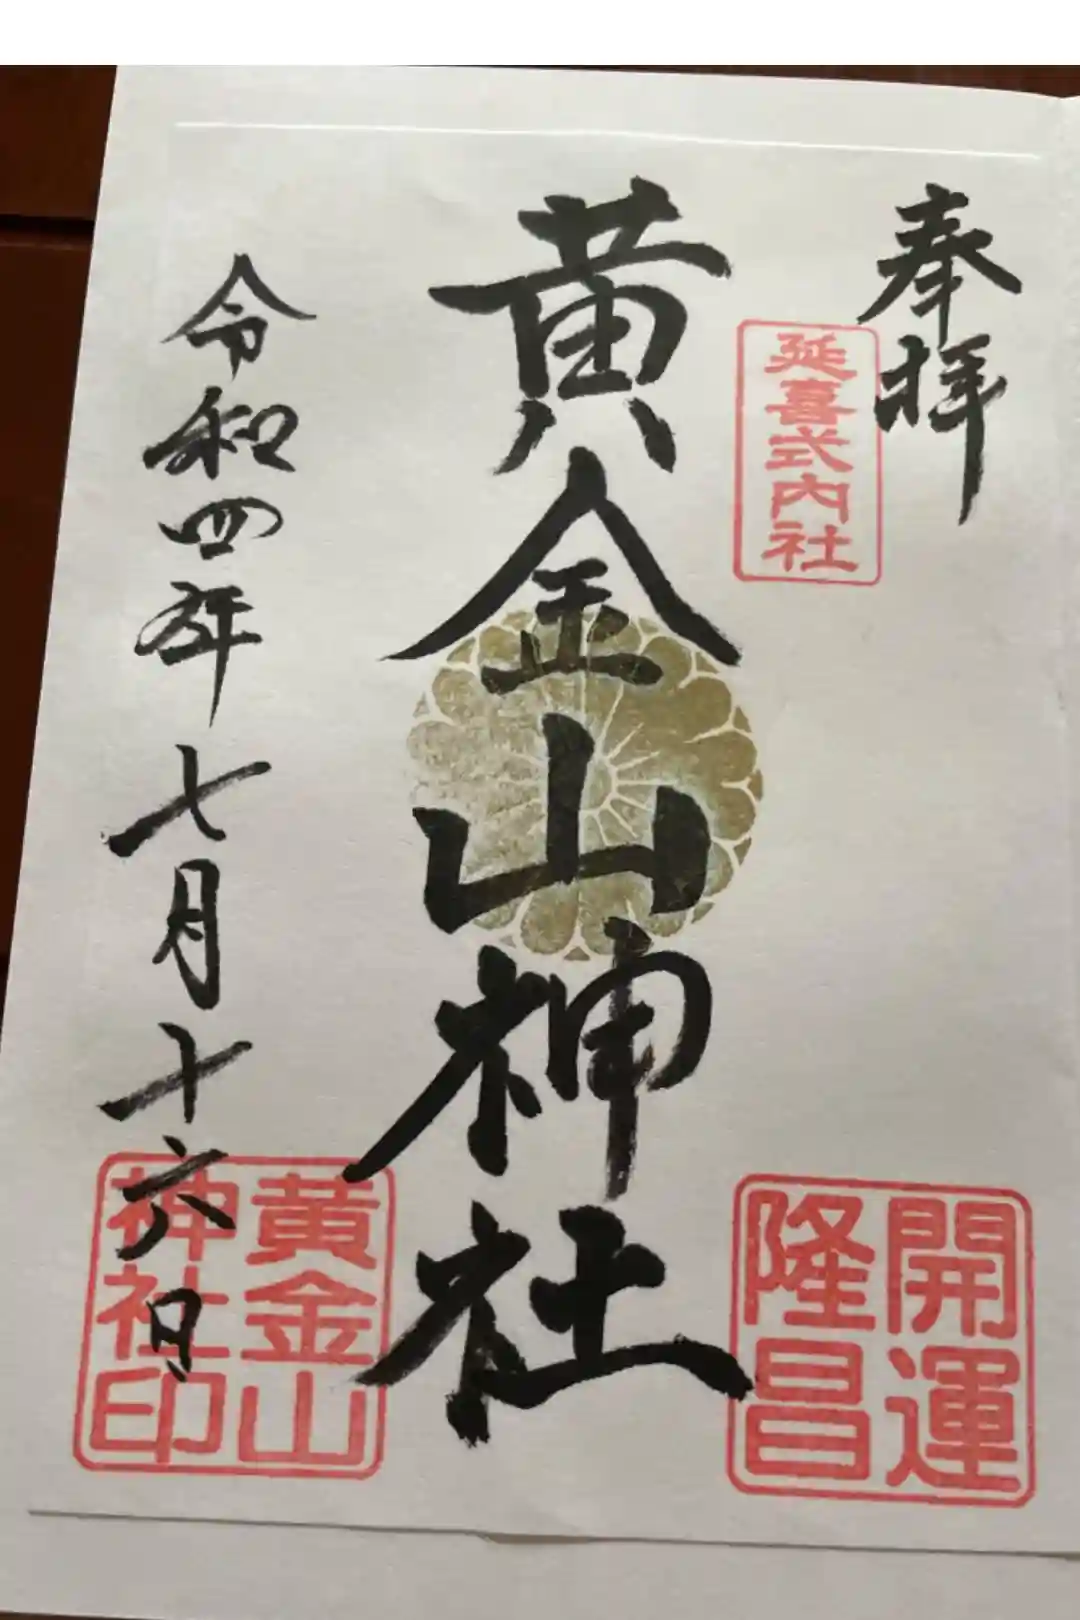 奉拝
延喜式内社
開運
隆昌
黄金山神社
令和四年七月十六日
黄金山
神社印